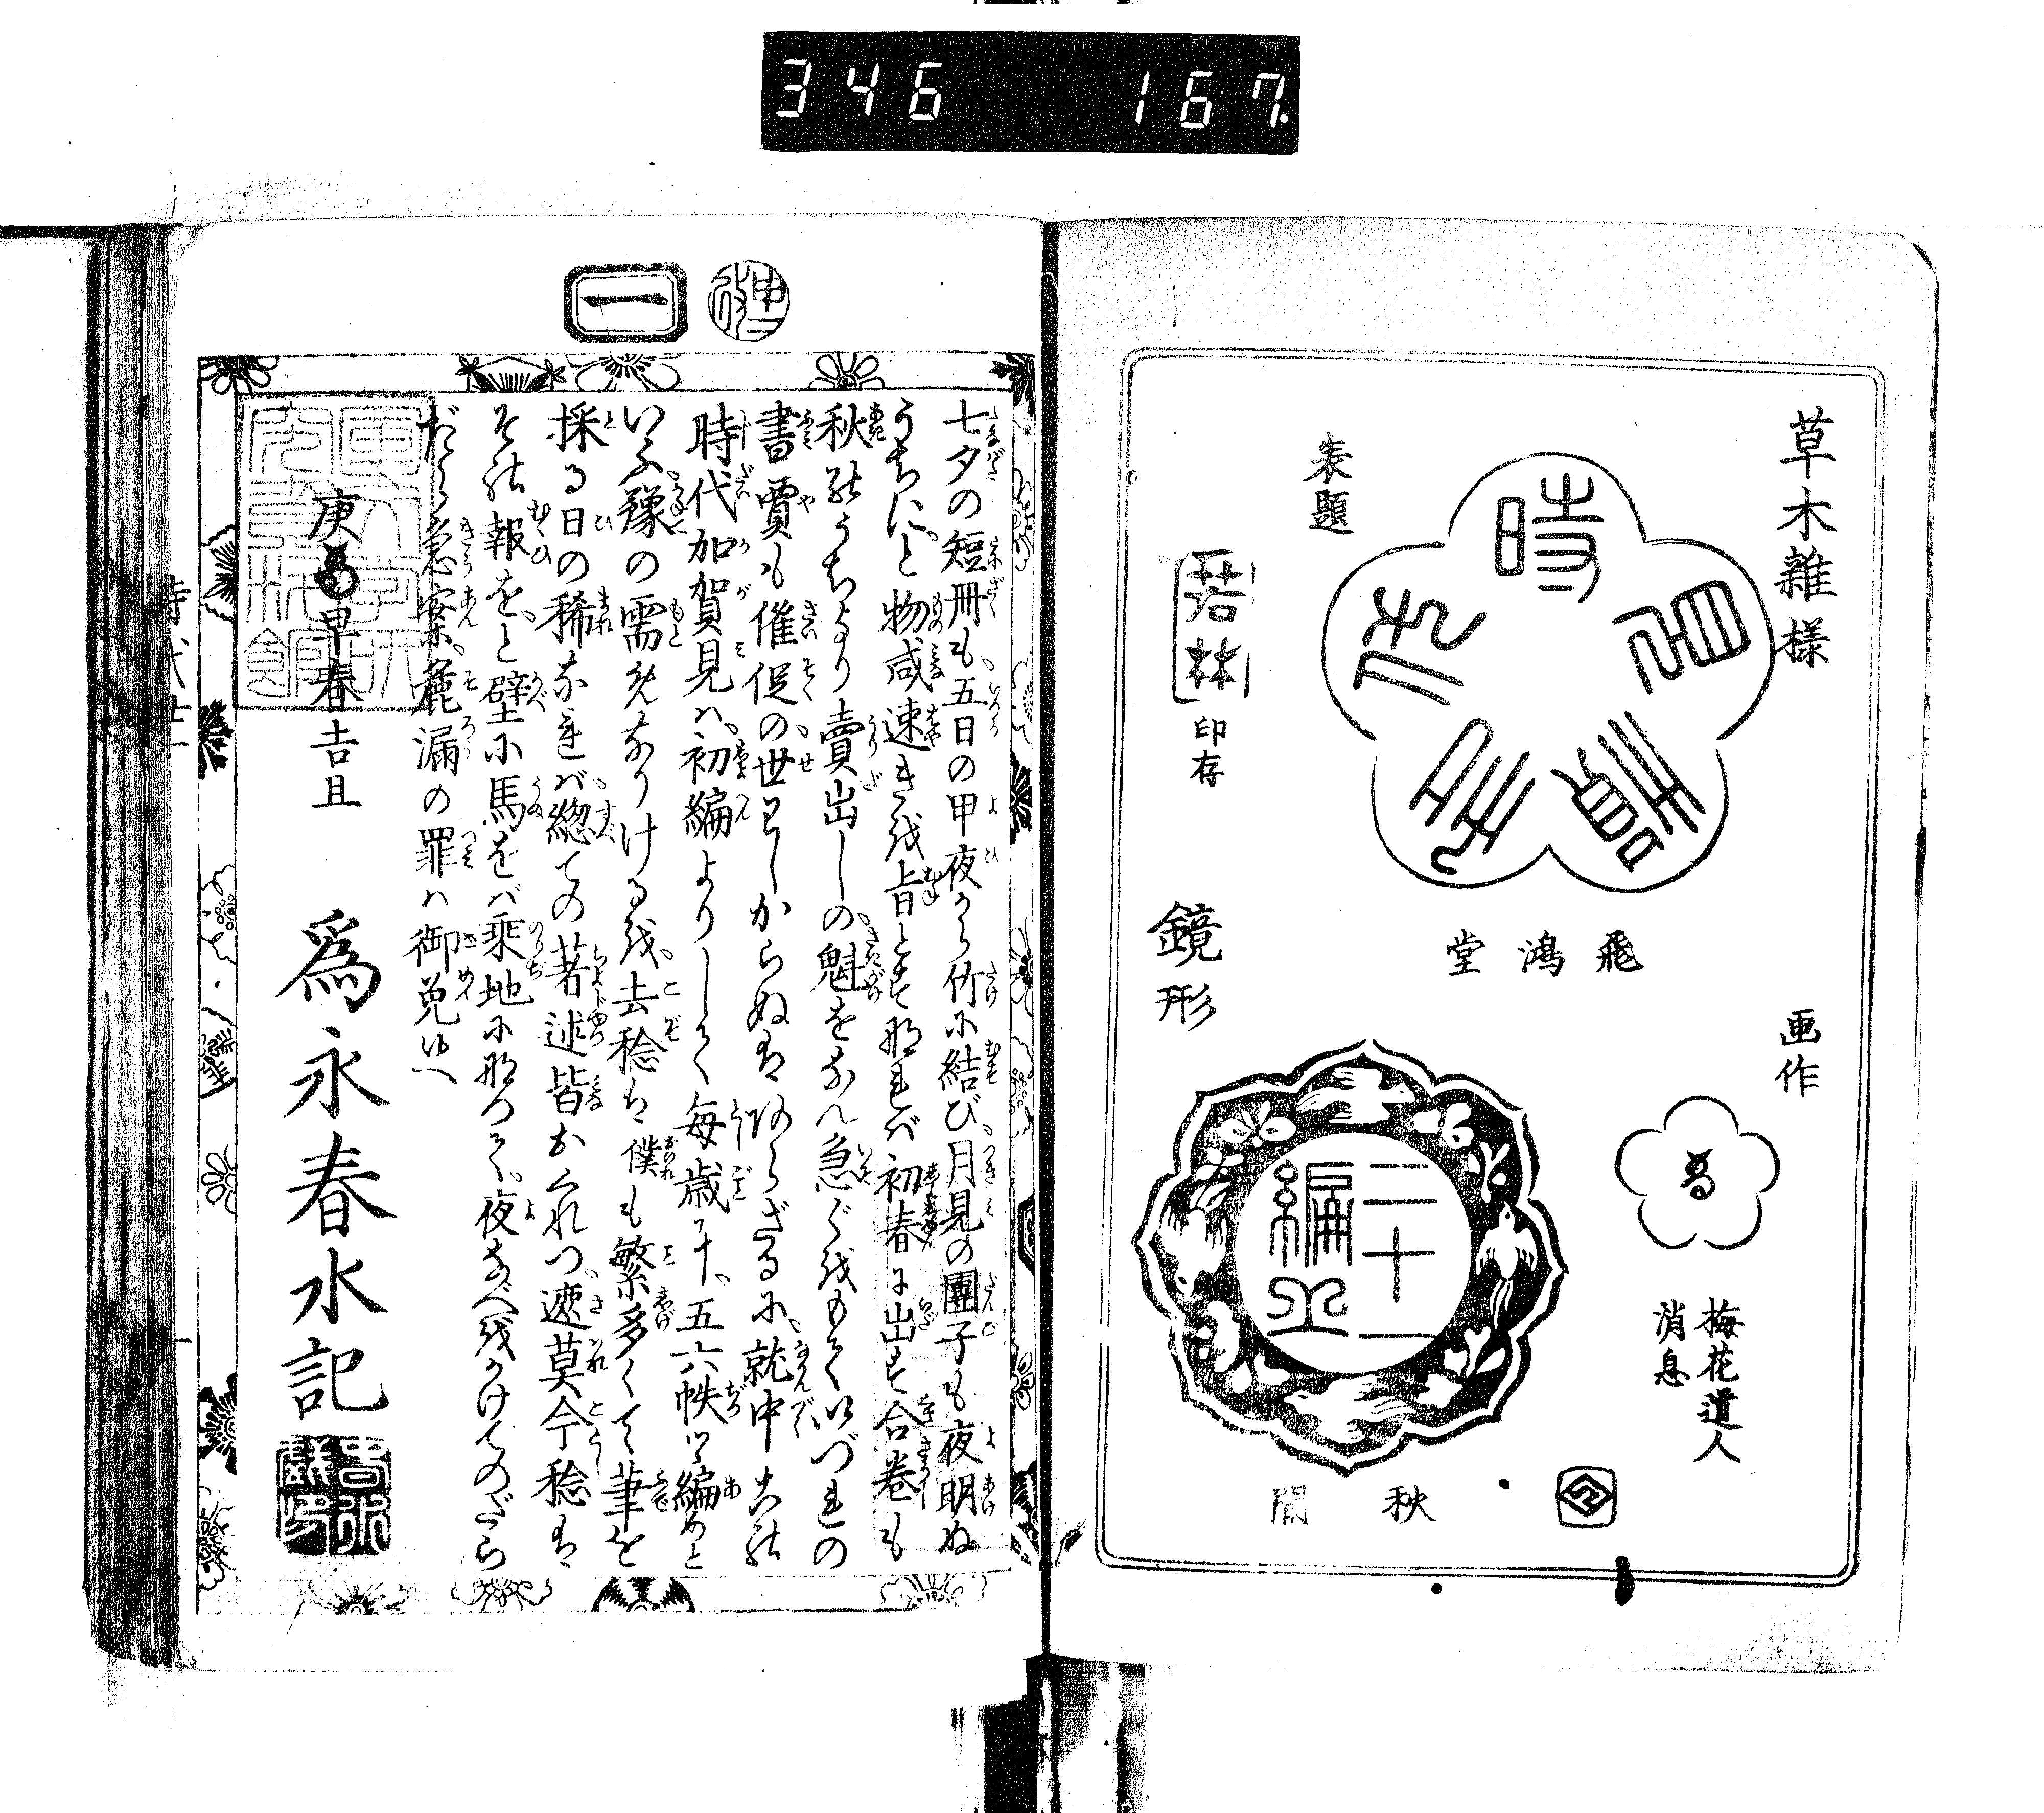 346 167
草木雜樣
表題
時
代
鏡形
飛鴻堂
若林
印存
画作
梅花道人
消息
二十一
編上
秋間
一
七夕の短冊も、五日の甲夜から竹に結び、月見の團子も夜明ぬ
うちに。と物咸速きを旨とすなれバ初春に出す合巻も
秋のうちより賣出しの、魁をなん急ぐをもていづれの
書賈も催促の、世わしからぬはあらざるに、就中此
時代加賀見ハ、初編よりして毎歳に、五六帙づゝ編めと
いふ、豫の需めなりけるを、去稔は僕も繁多くて筆を
採る日の稀なれバ、總ての著述皆おくれつ、遮莫今稔は
その報を、と壁に馬をバ乘地になつて、夜なべをかけてのだら
だら急案、麁漏の罪ハ御免候へ
庚申春吉旦
爲永春水記